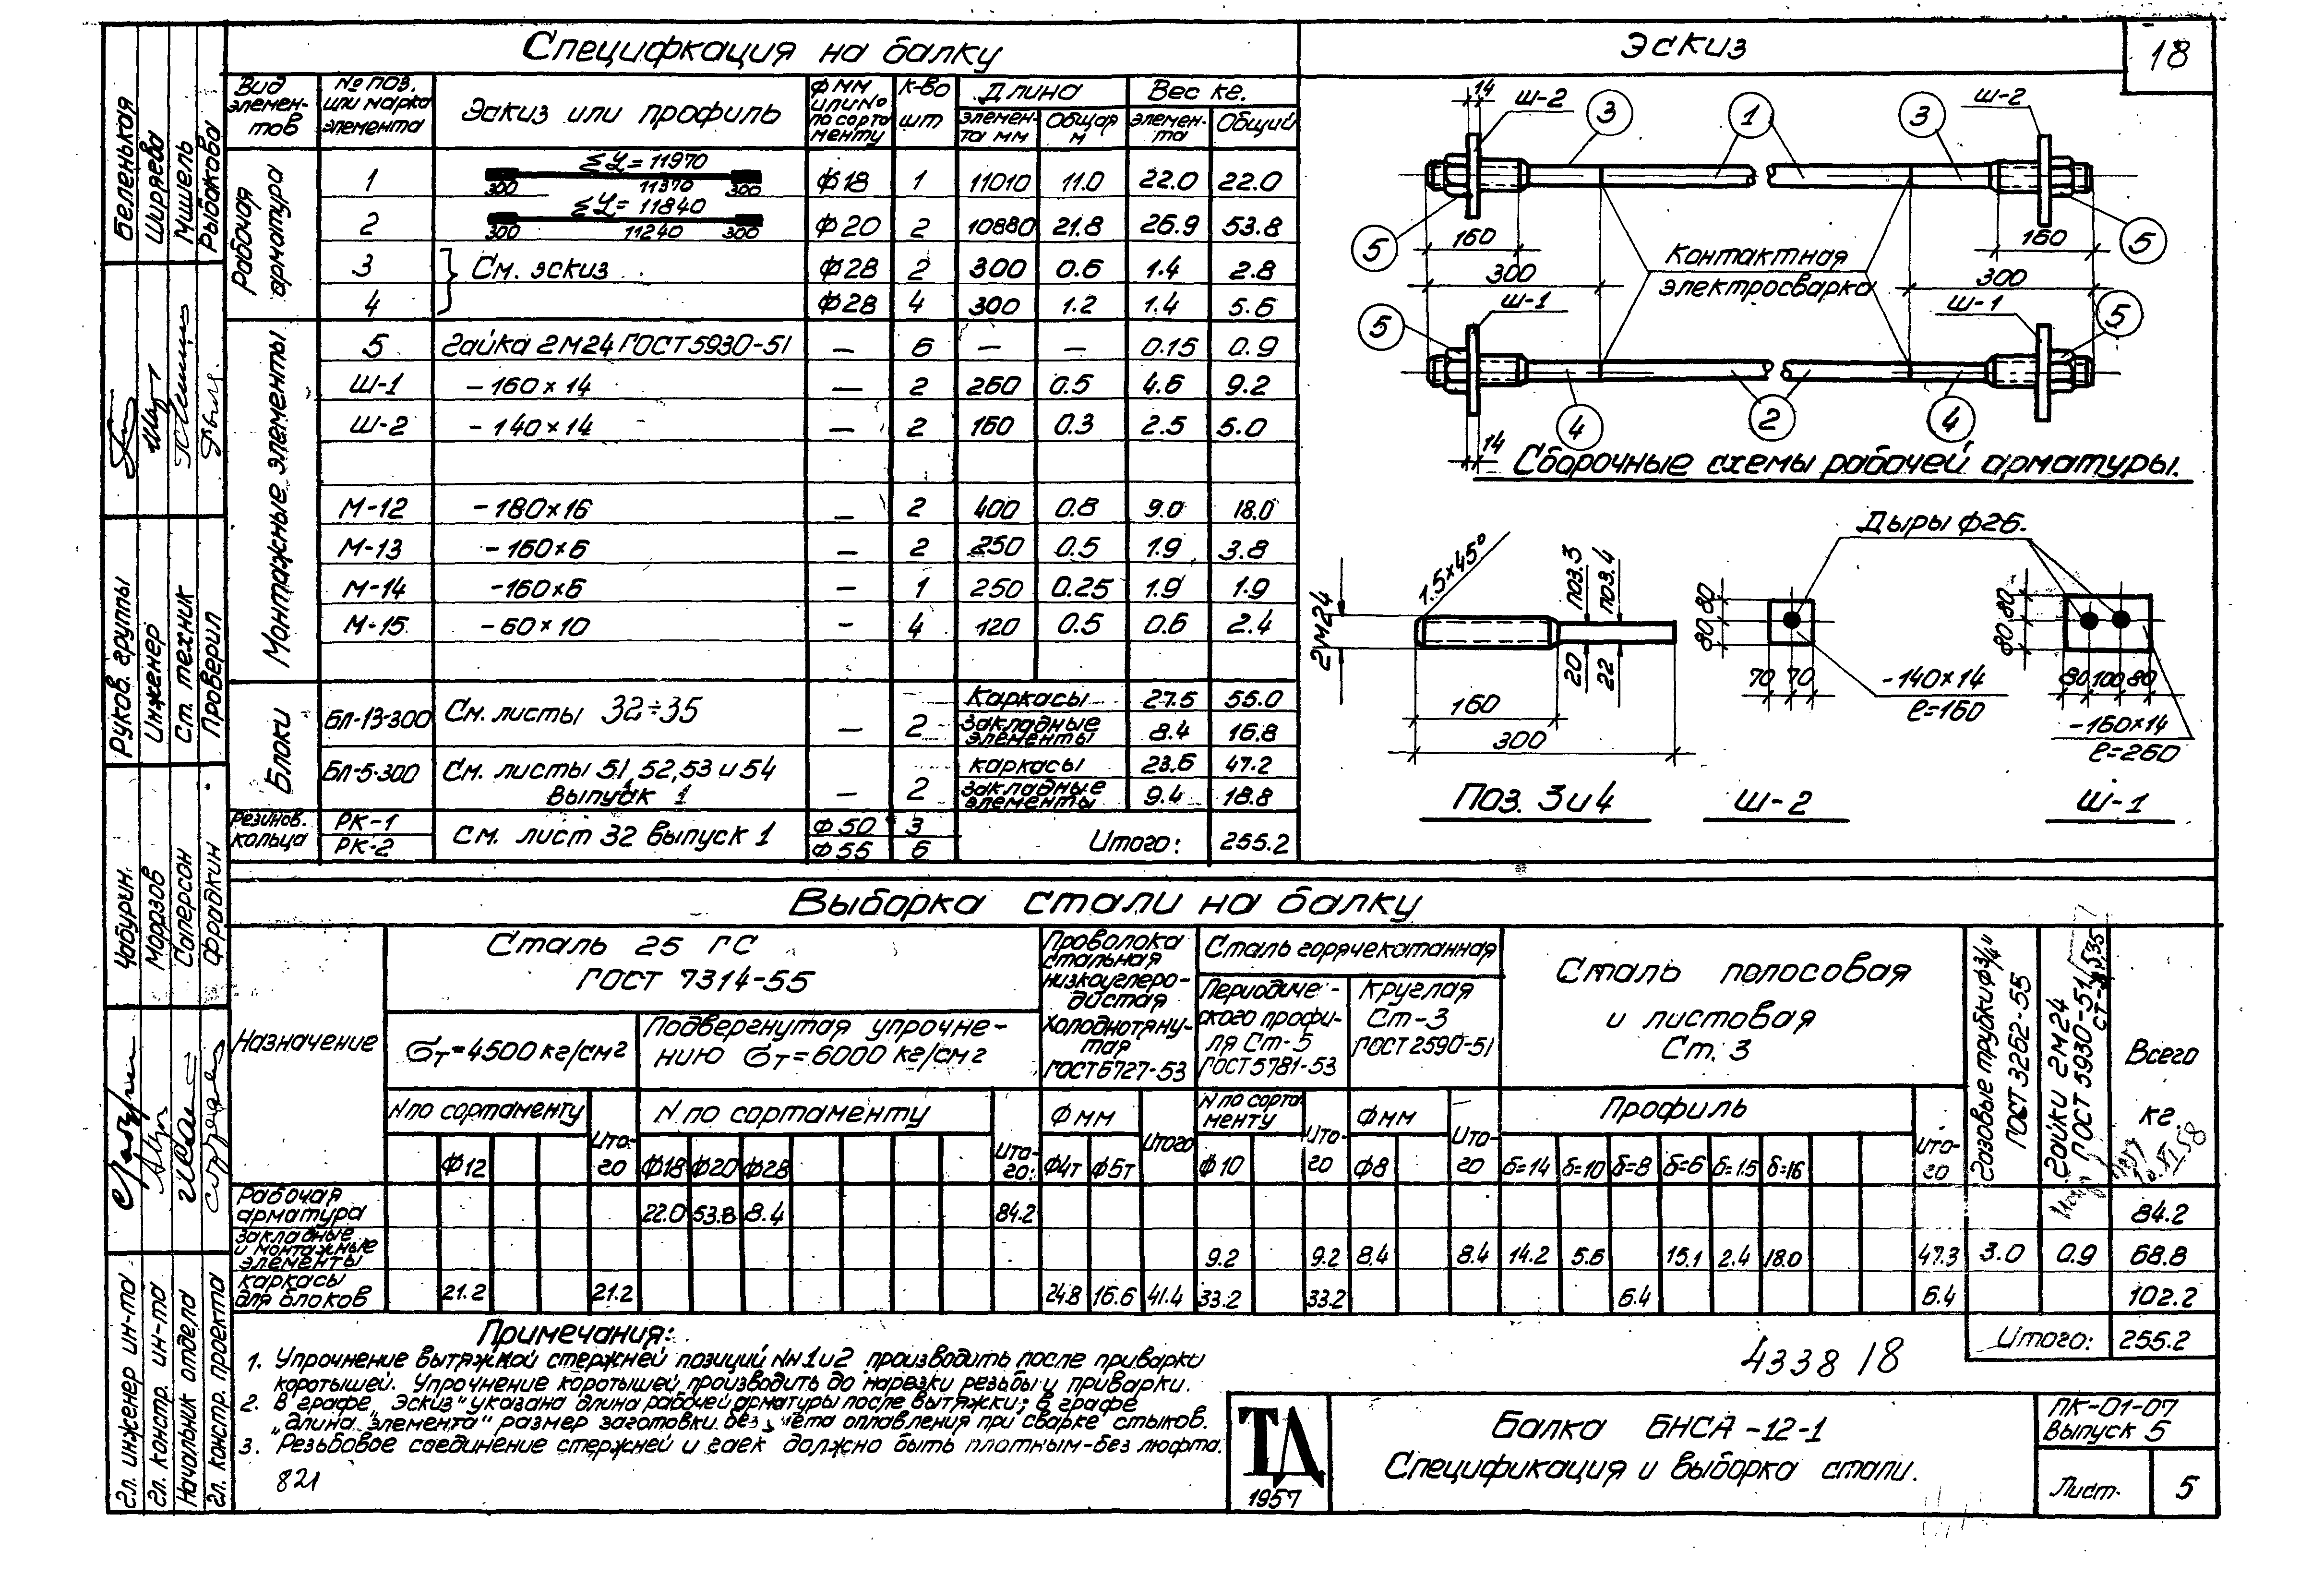 Спецификация на балку
Эскиз
18
Вид элемен-тов
№ поз. или марка элемента
Эскиз или профиль
Ф мм или № по сорта менту
к-во шт
Длина
элемен-та мм
Общая м
Вес кг.
элемен-та
Общий
Рабочая арматура
1 ΣL=11970 300 11370 300 Ф18 1 11010 11.0 22.0 22.0
2 ΣL=11840 300 11240 300 Ф20 2 10880 21.8 26.9 53.8
3 См. эскиз Ф28 2 300 0.6 1.4 2.8
4 Ф28 4 300 1.2 1.4 5.6
Монтажные элементы
5 Гайка 2М24 ГОСТ 5930-51 — 6 — — 0.15 0.9
Ш-1 -160×14 — 2 260 0.5 4.6 9.2
Ш-2 -140×14 — 2 160 0.3 2.5 5.0
М-12 -180×16 — 2 400 0.8 9.0 18.0
М-13 -160×6 — 2 250 0.5 1.9 3.8
М-14 -160×6 — 1 250 0.25 1.9 1.9
М-15 -60×10 — 4 120 0.5 0.6 2.4
Блоки
БЛ-13-300 См. листы 32÷35 — 2 Каркасы 27.5 55.0
Закладные элементы 8.4 16.8
БЛ-5-300 См. листы 51, 52, 53 и 54 Выпуск 1 — 2 каркасы 23.6 47.2
Закладные элементы 9.4 18.8
Резинов. кольца
РК-1 Ф50 3
РК-2 Ф55 6
См. лист 32 выпуск 1
Итого: 255.2
14 Ш-2 3 1 3 Ш-2
5 160 160 5
300 Контактная электросварка 300
5 Ш-1 Ш-1 5
4 2 4
14
Сборочные схемы рабочей арматуры.
Дыры ф26.
2М24 1.5×45° поз.3 поз.4 20 22
160
300
Поз. 3 и 4
80 80 70 70
-140×14
ℓ=160
Ш-2
80 80 80 100 80
-160×14
ℓ=260
Ш-1
Выборка стали на балку
Назначение
Сталь 25 ГС
ГОСТ 7314-55
σт=4500 кг/см2
Подвергнутая упрочне-
нию σт=6000 кг/см2
Проволока стальная низкоуглеро-дистая Холоднотяну-тая ГОСТ 6727-53
Сталь горячекатанная
Периодиче-ского профи-ля Ст-5 ГОСТ 5781-53
Круглая Ст-3 ГОСТ 2590-51
Сталь полосовая
и листовая
Ст. 3
Газовые трубки ф3/4" ГОСТ 3262-55
Гайки 2М24 ГОСТ 5930-51
Всего кг.
N по сортаменту Ито-го N по сортаменту Ито-го: Ф мм Итого N по сорта менту Ито-го Ф мм Ито-го Профиль Ито-го
Ф12 Ф18 Ф20 Ф28 Ф4т Ф5т Ф10 Ф8 δ=14 δ=10 δ=8 δ=6 δ=1.5 δ=16
Рабочая арматура 22.0 53.8 8.4 84.2 84.2
Закладные и монтажные элементы 9.2 9.2 8.4 8.4 14.2 5.6 15.1 2.4 18.0 47.3 3.0 0.9 68.8
Каркасы для блоков 21.2 21.2 24.8 16.6 41.4 33.2 33.2 6.4 6.4 102.2
Итого: 255.2
Примечания:
1. Упрочнение вытяжкой стержней позиций NN 1 и 2 производить после приварки
коротышей. Упрочнение коротышей производить до нарезки резьбы и приварки.
2. В графе „Эскиз" указана длина рабочей арматуры после вытяжки; в графе
„длина элемента" размер заготовки без учета оплавления при сварке стыков.
3. Резьбовое соединение стержней и гаек должно быть плотным-без люфта.
821
4338 18
ТД
1957
Балка БНСА-12-1
Спецификация и выборка стали.
ПК-01-07
Выпуск 5
Лист. 5
Беленькая
Ширяева
Мишель
Рыбакова
Руков. группы
Инженер
Ст. техник
Проверил
Чабурин.
Моразов
Саперсон
Фрадкин
Гл. инженер ин-та
Гл. констр. ин-та
Начальник отдела
Гл. констр. проекта